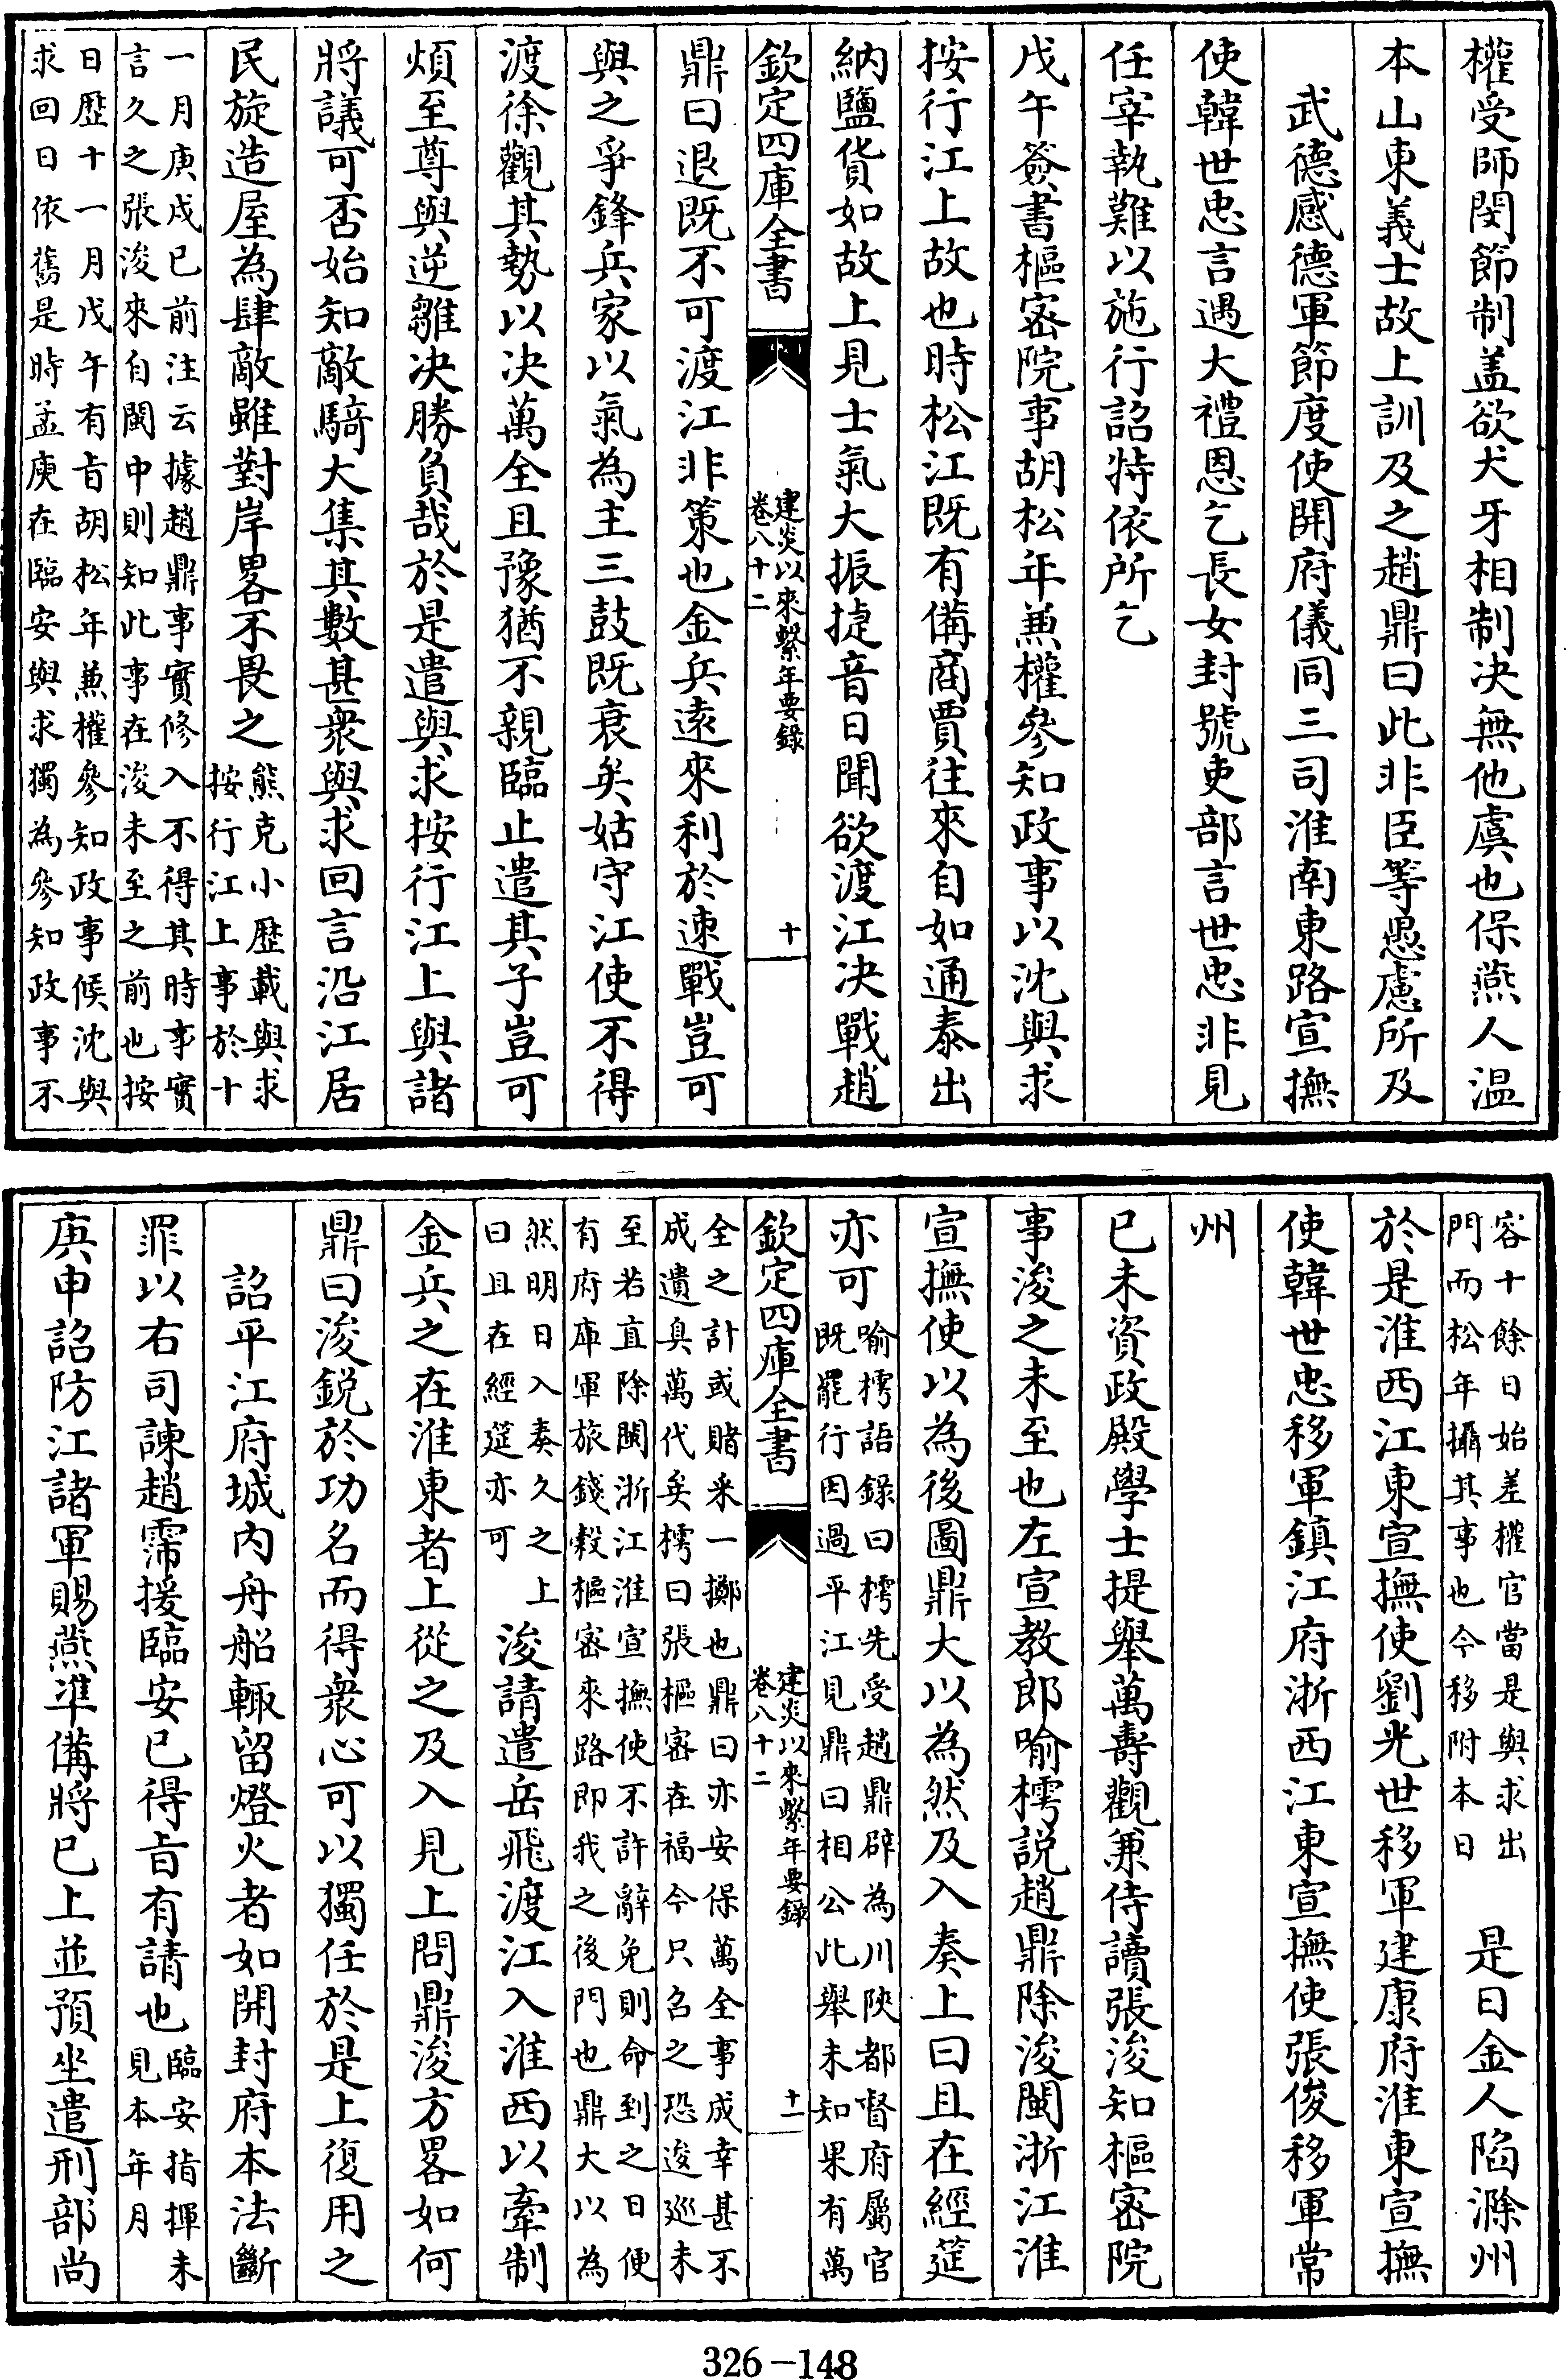 權受師閔節制盖欲犬牙相制決無他虞也保燕人温
本山東義士故上訓及之趙鼎曰此非臣等愚慮所及
武德感德軍節度使開府儀同三司淮南東路宣撫
使韓世忠言遇大禮恩乞長女封號吏部言世忠非見
任宰執難以施行詔特依所乞
戊午簽書樞密院事胡松年兼權參知政事以沈與求
按行江上故也時松江既有備商賈往來自如通泰出
納鹽貨如故上見士氣大振捷音日聞欲渡江決戰趙
欽定四庫全書
建炎以來繫年要錄
卷八十二
十
鼎曰退既不可渡江非策也金兵遠來利於速戰豈可
與之爭鋒兵家以氣為主三鼓既衰矣姑守江使不得
渡徐觀其勢以決萬全且豫猶不親臨止遣其子豈可
煩至尊與逆雛決勝負哉於是遣與求按行江上與諸
將議可否始知敵騎大集其數甚衆與求回言沿江居
民旋造屋為肆敵雖對岸畧不畏之
熊克小歷載與求
按行江上事於十
一月庚戌已前注云據趙鼎事實修入不得其時事實
言久之張浚來自閩中則知此事在浚未至之前也按
日歷十一月戊午有旨胡松年兼權參知政事候沈與
求回日依舊是時孟庾在臨安與求獨為參知政事不
容十餘日始差權官當是與求出
門而松年攝其事也今移附本日
是日金人陷滁州
於是淮西江東宣撫使劉光世移軍建康府淮東宣撫
使韓世忠移軍鎮江府浙西江東宣撫使張俊移軍常
州
已未資政殿學士提舉萬壽觀兼侍讀張浚知樞密院
事浚之未至也左宣教郎喻樗説趙鼎除浚閩浙江淮
宣撫使以為後圖鼎大以為然及入奏上曰且在經筵
亦可
喻樗語錄曰樗先受趙鼎辟為川陜都督府屬官
既罷行因過平江見鼎曰相公此舉未知果有萬
欽定四庫全書
建炎以來繫年要錄
卷八十二
十一
全之計或賭采一擲也鼎曰亦安保萬全事成幸甚不
成遺臭萬代矣樗曰張樞密在福今只召之恐逡巡未
至若直除閩浙江淮宣撫使不許辭免則命到之日便
有府庫軍旅錢穀樞密來路即我之後門也鼎大以為
然明日入奏久之上
曰且在經筵亦可
浚請遣岳飛渡江入淮西以牽制
金兵之在淮東者上從之及入見上問鼎浚方畧如何
鼎曰浚鋭於功名而得衆心可以獨任於是上復用之
詔平江府城内舟船輙留燈火者如開封府本法斷
罪以右司諫趙霈援臨安已得旨有請也
臨安指揮未
見本年月
庚申詔防江諸軍賜燕凖備將已上並預坐遣刑部尚
326-148